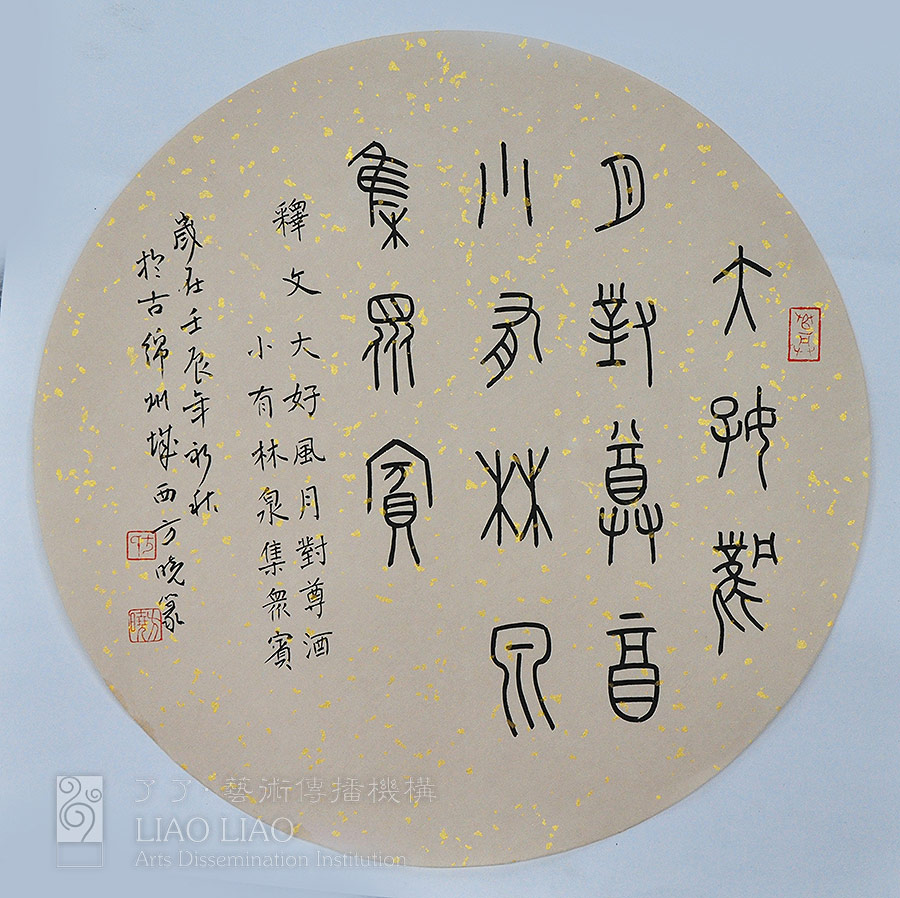 大好風
月對尊酉
小有林泉
集眾賓
釋文 大好風月對尊酒
小有林泉集眾賓
歲在壬辰年初秋
於古綿州城西方曉篆
了了·藝術傳播機構
LIAO LIAO
Arts Dissemination Institution